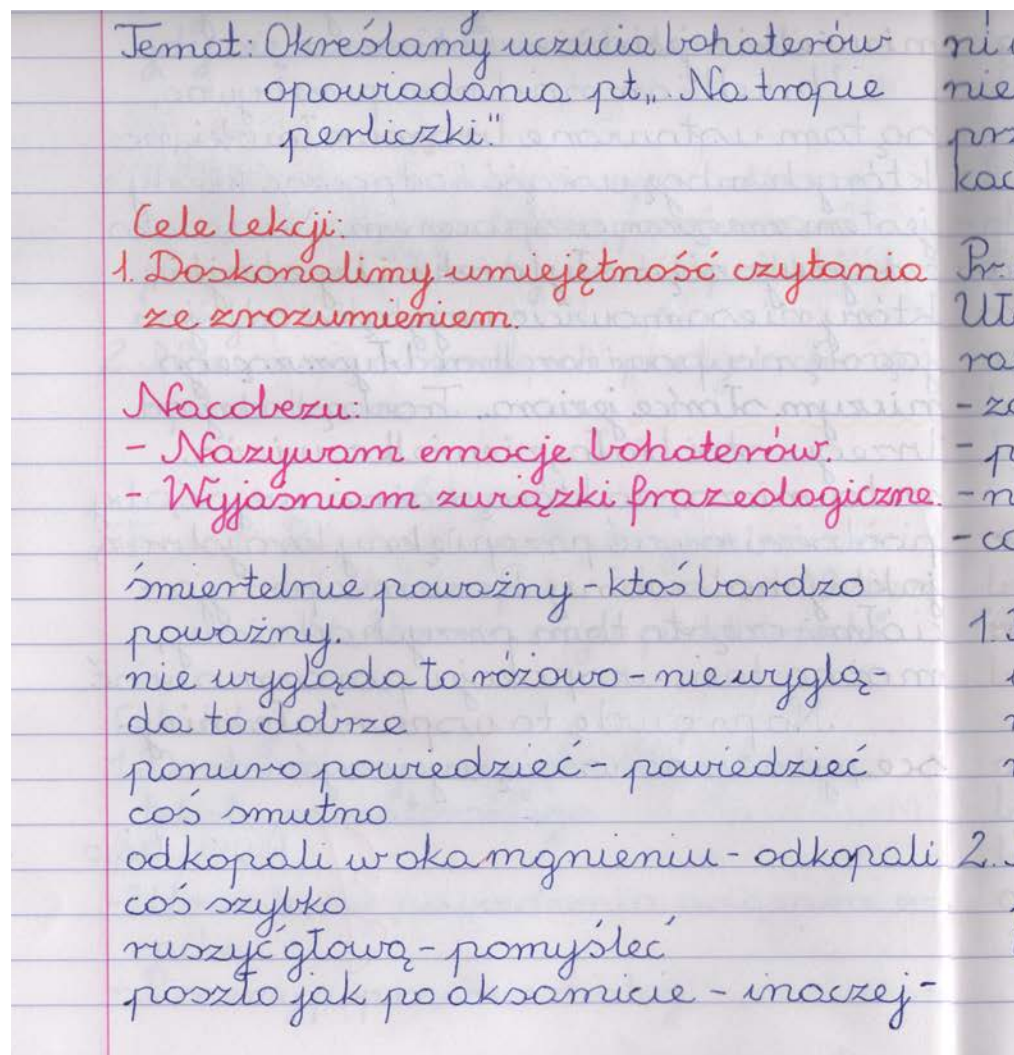 Temat: Określamy uczucia bohaterów
opowiadania pt „Na tropie
perliczki."
Cele lekcji:
1. Doskonalimy umiejętność czytania
ze zrozumieniem.
Nacobezu:
- Nazywam emocje bohaterów.
- Wyjaśniam związki frazeologiczne.
śmiertelnie poważny - ktoś bardzo
poważny.
nie wygląda to różowo - nie wyglą-
da to dobrze
ponuro powiedzieć - powiedzieć
coś smutno
odkopali w oka mgnieniu - odkopali
coś szybko
ruszyć głową - pomyśleć
poszło jak po aksamicie - inaczej -